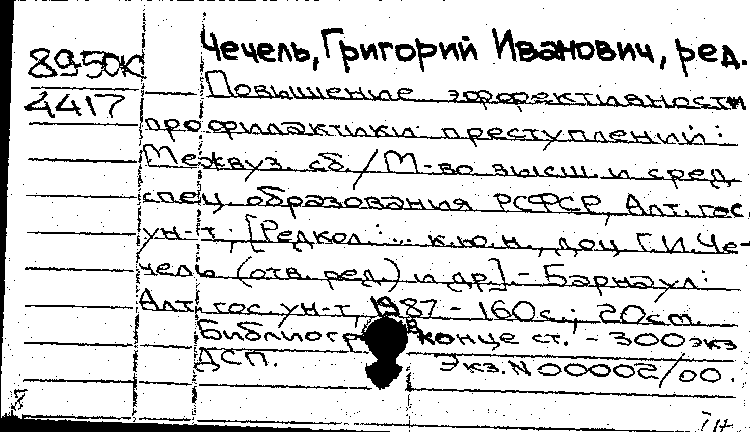 Чечель, Григорий Иванович, ред.
8950К
4417
Повышение эффективности
профилактики преступлений:
Межвуз. сб./М-во высш. и сред.
спец. образования РСФСР, Алт. гос.
ун-т; [Редкол.:... к.ю.н., доц. Г.И.Че-
чель (отв. ред.) и др.]. - Барнаул:
Алт. гос. ун-т, 1987 - 160с.; 20см.
Библиогр. в конце ст. - 300экз
ДСП. Экз. N 00002/00.